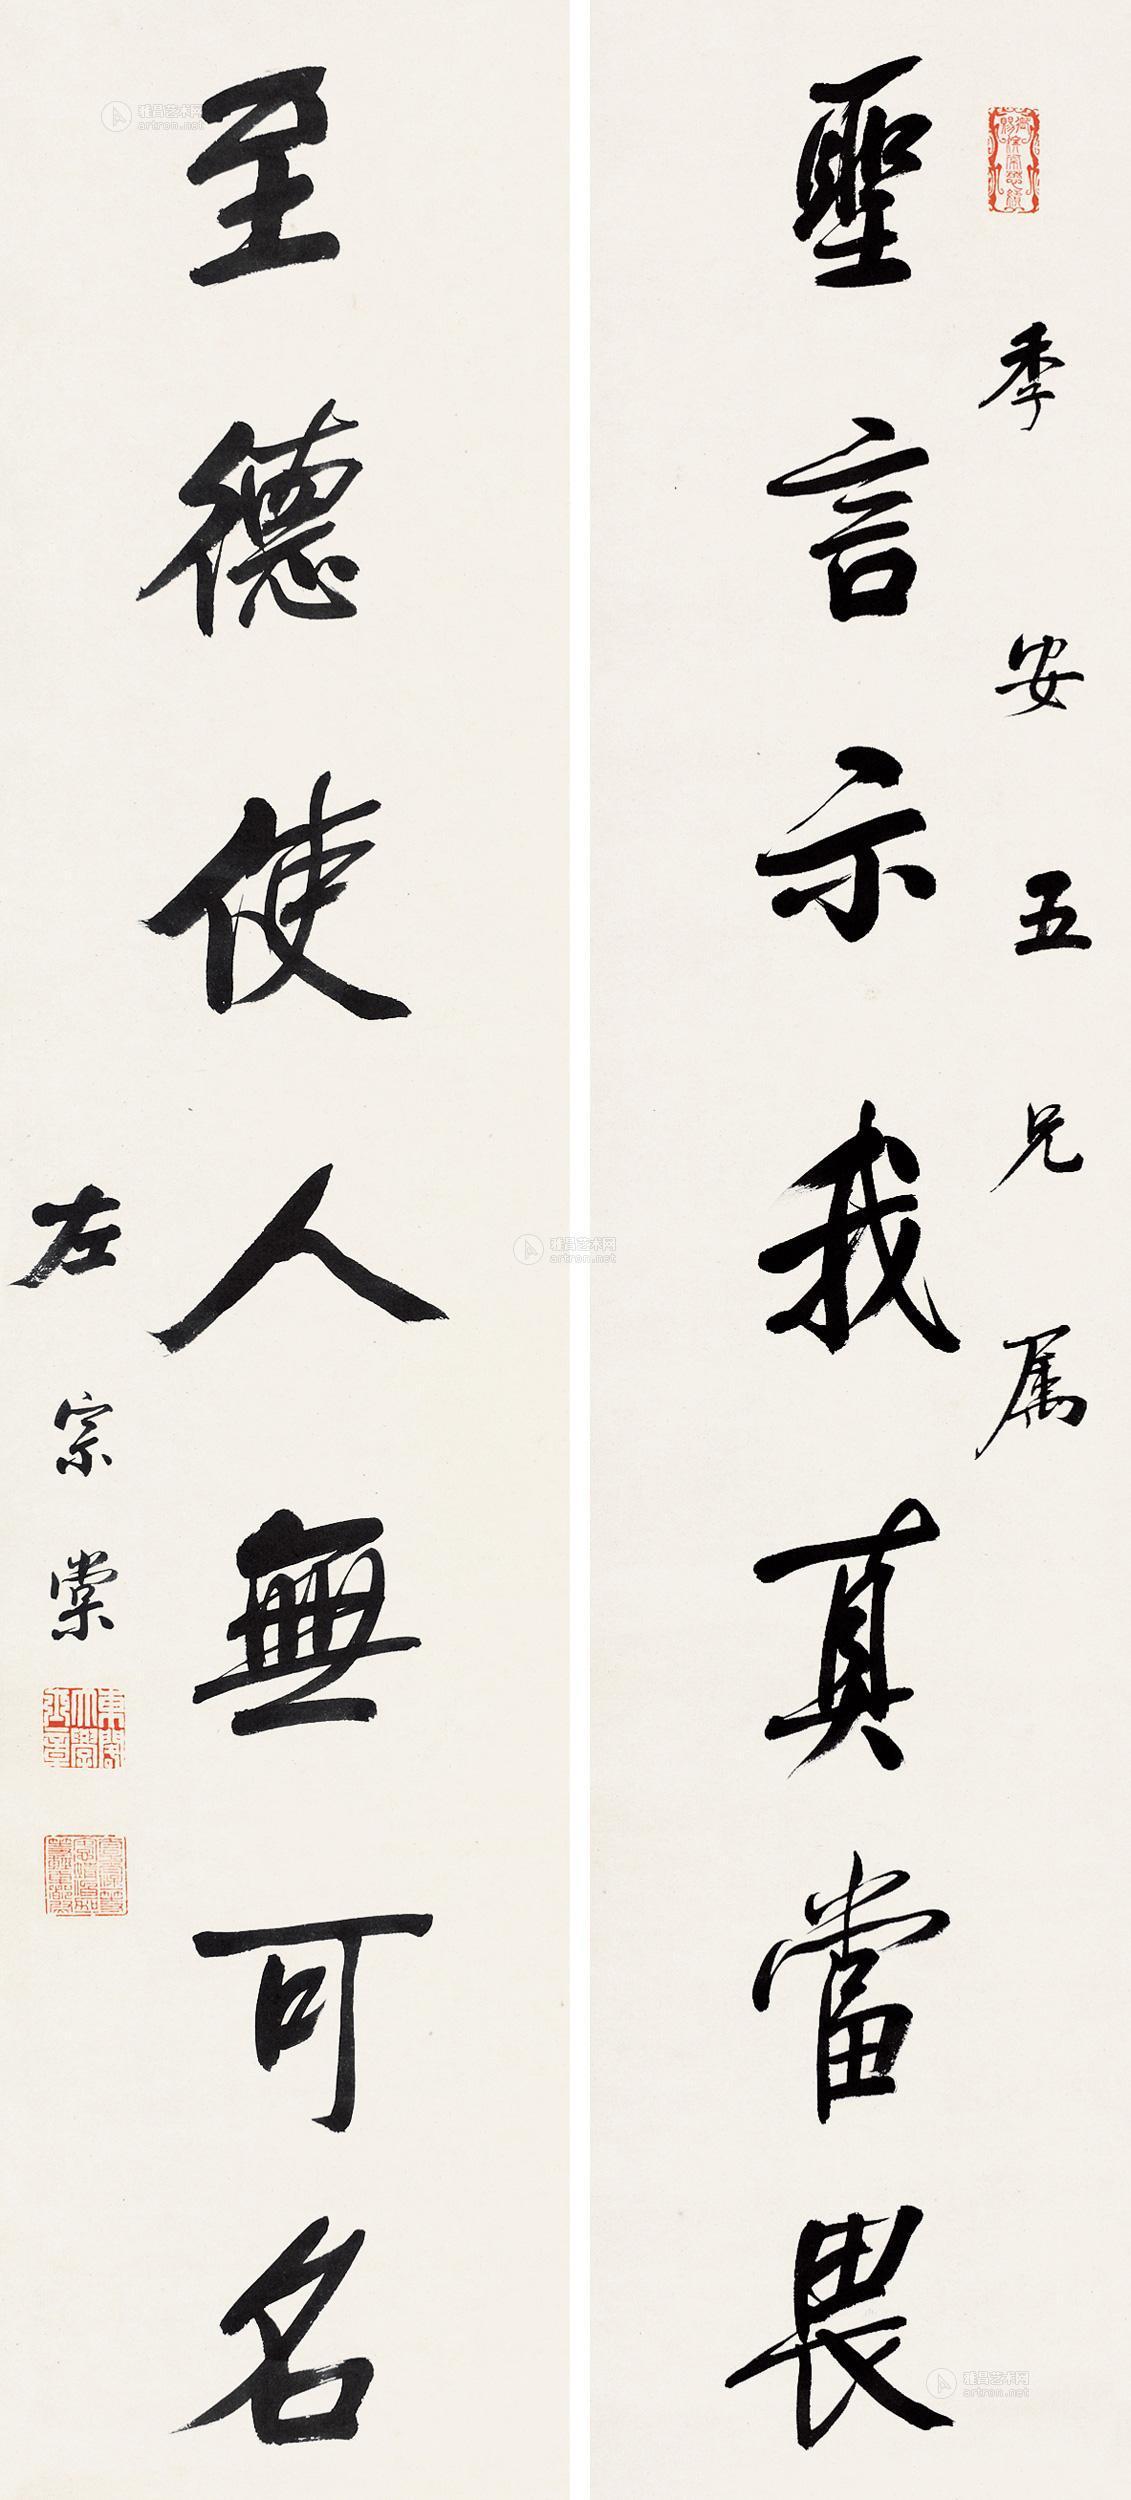 季安五兄属
聖言示我真當畏
至德使人無可名
左宗棠
雅昌艺术网
artron.net
雅昌艺术网
artron.net
雅昌艺术网
artron.net